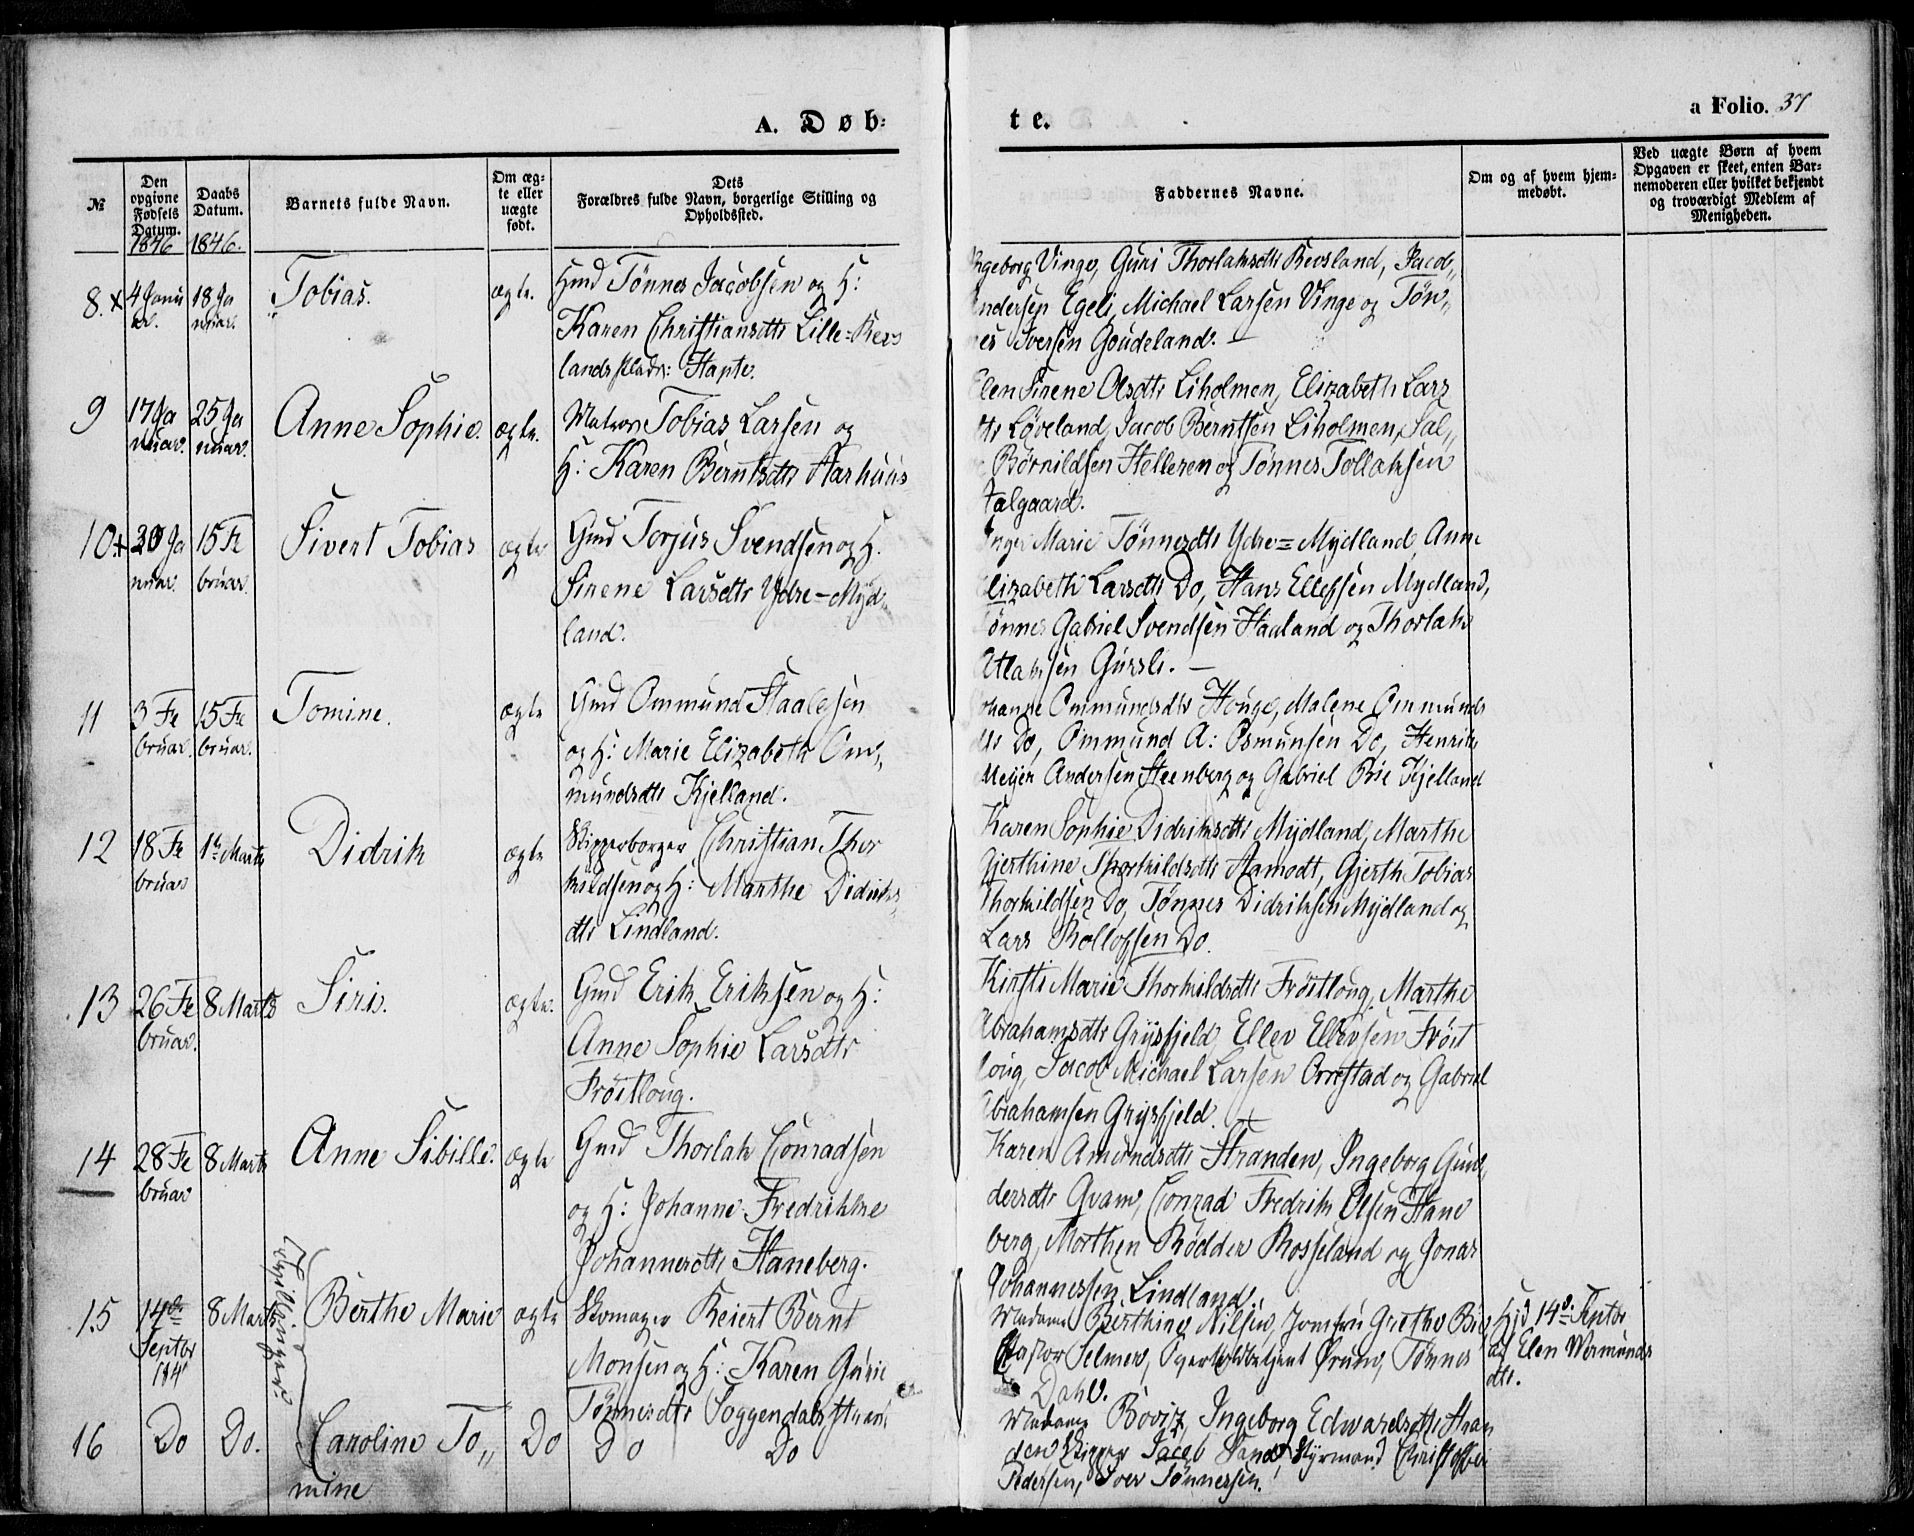 A. Døb-
te.
a Folio. 37
№
Den opgivne Fødsels Datum.
1846
Daabs Datum.
1846.
Barnets fulde Navn.
Om ægte eller uægte født.
Dets
Forældres fulde Navn, borgerlige Stilling og
Opholdssted.
Faddernes Navne.
Om og af hvem hjem-
medøbt.
Ved uægte Børn af hvem
Opgaven er skeet, enten Bar-
nemoderen eller hvilket bekjendt
og troværdigt Medlem af
Menigheden.
8. x
4 Janu
18 Ja
nuar.
Tobias.
ægte.
Gmd Tønnes Jacobsen og H:
Karen Christiansdtr Lille-Revs
lands Hapte.
Ingeborg Vinge, Guri Thorlaksdtr Revsland, Jacob
Andersen Egeli, Michael Larsen Vinge og Tøn„
nes Iversen Goudeland. -
9
17 Ja
nuar.
25 Ja
nuar.
Anne Sophie.
ægte.
Matros Tobias Larsen og
H: Karen Berntsdtr Aarhuus
Elen Sirene Olsdtr Liholmen, Elizabeth Lars
dtr Løveland, Jacob Berntsen Liholmen, Sal„
Børnildsen Helleren og Tønnes Tollaksen
Dalgaard.
10 +
20 Ja
nuar.
15 Fe
bruar.
Sivert Tobias
ægte
Gmd Torjus Svendsen og H.
Sirene Larsdtr Ydre-Myd„
land.
Inger Marie Tønnesdtr Ydre=Mydland, Anne
Elizabeth Larsdtr Do, Hans Ellefsen Mydland,
Tønnes Gabriel Svendsen Haaland og Thorlak
Atlaksen Gursli. -
11
3 Fe
bruar.
15 Fe
bruar.
Tomine.
ægte
Gmd Ommund Staalesen
og H: Marie Elizabeth Om„
mundsdtr Kjelland.
Johanne Ommundsdtr Houge, Malene Ommunds
dtr Do, Ommund A: Osmunsen Do, Henrik
Meyer Andersen Steenberg og Gabriel Brie Kjelland
12
18 Fe
bruar
1te Marts
Didrik
ægte
Skipperborger Christian Thor
kildsen og H: Marthe Didriks„
dtr Lindland.
Karen Sophie Didriksdtr Mydland, Marthe
Gjerthine Thorkildsdtr Aamodt, Gjerth Tobias
Thorkildsen Do, Tønnes Didriksen Mydland og
Lars Rollofsen Do.
13
26 Fe
bruar.
8 Marts
Siri.
ægte.
Gmd Erik Eriksen og H:
Anne Sophie Larsdtr
Frøitloug.
Kirsti Marie Thorkildsdtr Frøitloug, Marthe
Abrahamsdtr Grysfjeld, Ellev Ellevsen Frøit
loug, Jacob Michael Larsen Orrestad og Gabriel
Abrahamsen Grysfjeld.
14
28 Fe
bruar
8 Marts
Anne Sibille.
ægte
Gmd Thorlak Conradsen
og H: Johanne Fredrikke
Johannesdtr Haneberg.
Karen Amundsdtr Stranden, Ingeborg Gun„
dersdtr Qvam, Conrad Fredrik Olsen Hane
berg, Morthen Rødder Rosseland og Jonas
Johannessen Lindland.
15
14de
Septbr
184
8 Marts
Tvillinger.
Berthe Marie
ægte
Skomager Reiert Bernt
Monsen og H: Karen Gurie
Tønnesdtr Soggendalsstrand
Madame Berthine Nilsen, Jomfru Grethe Brie
Pastor Selmer, Overtoldbetjent Ørum, Tønnes
Dahl.
Hjd 14de Septbr
af Elen Wermunds
dtr.
16
Do
Do.
Caroline To„
mine
Do
Do Do
Madame Bovitz, Ingeborg Edwardsdtr Stran
den Skipper Jacob Sand, Styrmand Christopher
Pedersen, Iver Tønnessen.